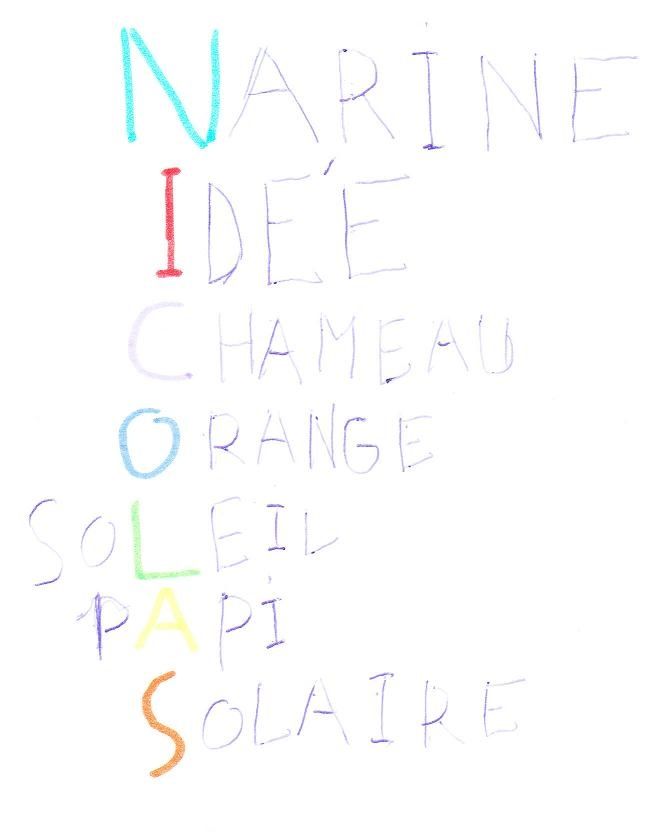 NARINE
IDÉE
CHAMEAU
ORANGE
SOLEIL
PAPI
SOLAIRE